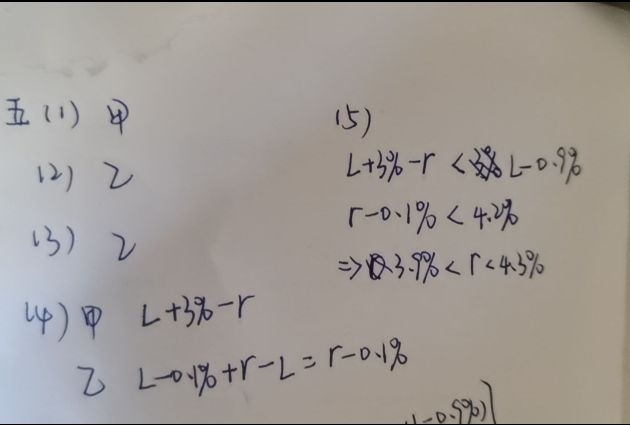 五 (1) 甲
(2) 乙
(3) 乙
(4) 甲 L+3%-r
乙 L-0.1%+r-L=r-0.1%
(5)
L+3%-r < L-0.9%
r-0.1% < 4.2%
⇒ 3.9% < r < 4.3%
-0.9%)]